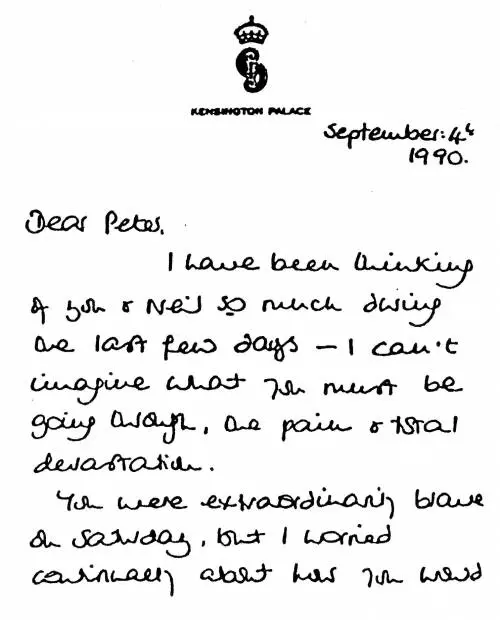 KENSINGTON PALACE
September: 4th
1990.
Dear Peter,
I have been thinking
of you & Neil so much during
the last few days — I can't
imagine what you must be
going through, the pain & total
devastation.
You were extraordinarily brave
on Saturday, but I worried
continually about how you would